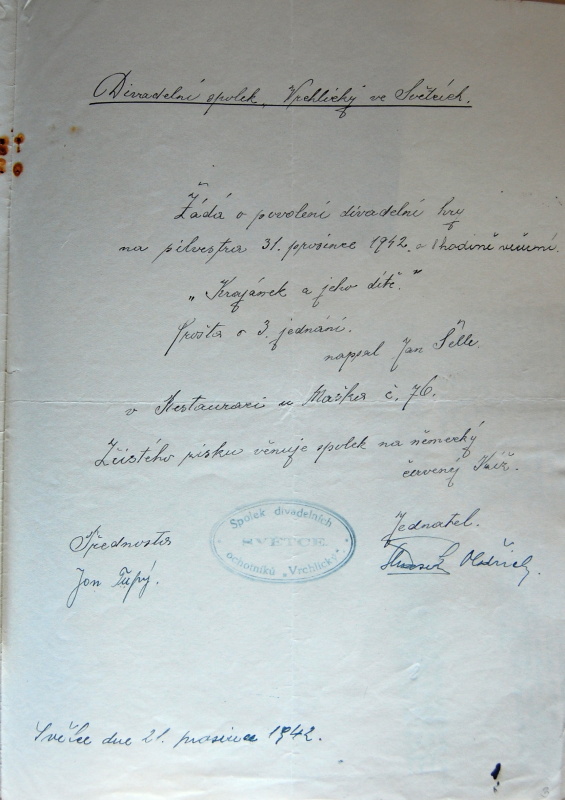 Divadelní spolek „Vrchlický ve Světcích.
Žádá o povolení divadelní hry
na silvestra 31. prosince 1942. o hodině večerní.
„Krajánek a jeho dítě."
Fraška o 3. jednání.
napsal Jan
v Restauraci u Maška č. 76.
Zčistého zisku věnuje spolek na německý
červený kříž.
Spolek divadelních
SVĚTCE
ochotníků „Vrchlický"
Jednatel.
Oldřich.
Přednosta
Jan Tupý.
Světce dne 21. prosince 1942.